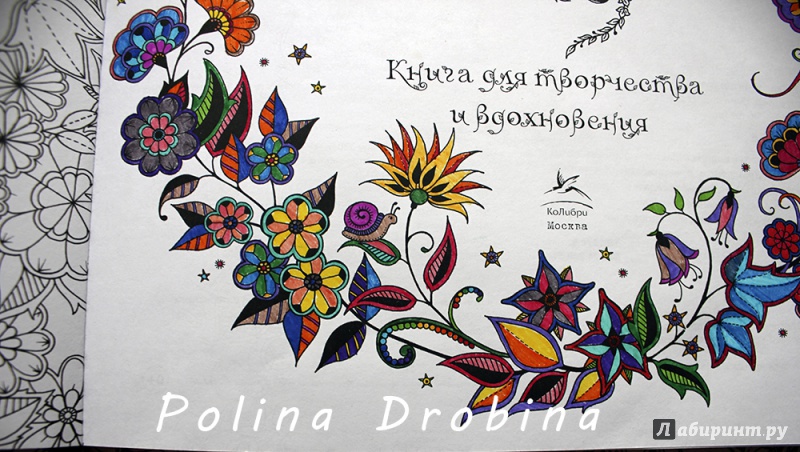 Книга для творчества
и вдохновения
КоЛибри
Москва
Polina Drobina
Лабиринт.ру